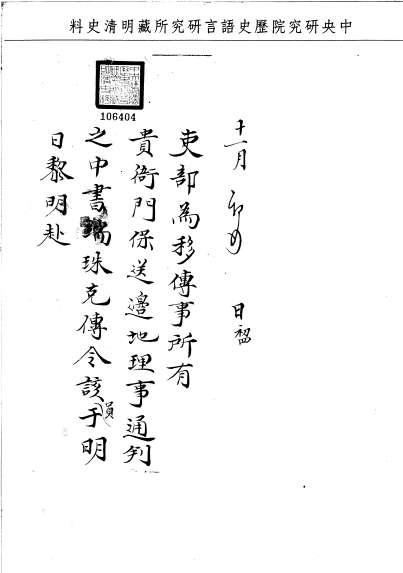 中央研究院歷史語言研究所藏明清史料
106404
十一月
日
吏部為移傳事所有
貴衙門保送邊地理事通判
之中書瑞珠克傳令該員于明
日黎明赴